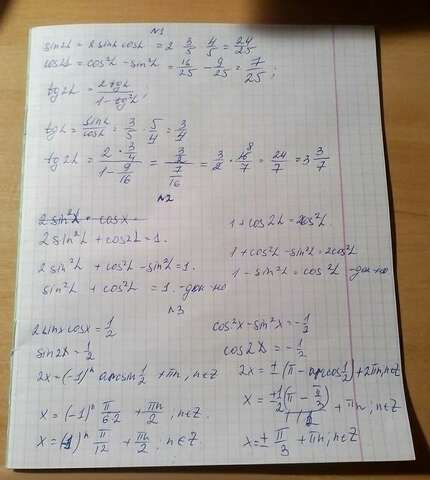 N1
sin2L = 2 sinL cosL = 2 · 3/5 · 4/5 = 24/25
cos2L = cos²L - sin²L = 16/25 - 9/25 = 7/25;
tg2L = 2tgL/1-tg²L;
tgL = sinL/cosL = 3/5 · 5/4 = 3/4
tg2L = 2·3/4 / 1-9/16 = 3/2 / 7/16 = 3/2 · 16 8/7 = 24/7 = 3 3/7
N2
2 sin²L + cosL =
2 sin²L + cos2L = 1.
2 sin²L + cos²L - sin²L = 1.
sin²L + cos²L = 1. - док-но
1 + cos2L = 2cos²L.
1 + cos²L - sin²L = 2cos²L
1 - sin²L = cos²L - док-но
N3
2sinx cosx = 1/2
sin2x = 1/2
2x = (-1)ⁿ arcsin 1/2 + πn, n∈Z
x = (-1)ⁿ π/6·2 + πn/2, n∈Z.
x = (-1)ⁿ π/12 + πn/2, n∈Z.
cos²x - sin²x = -1/2
cos2x = -1/2
2x = ± (π - arccos 1/2) + 2πn, n∈Z
x = ±1/2 (π - π/3) + πn; n∈Z
x = ± π/3 + πn; n∈Z